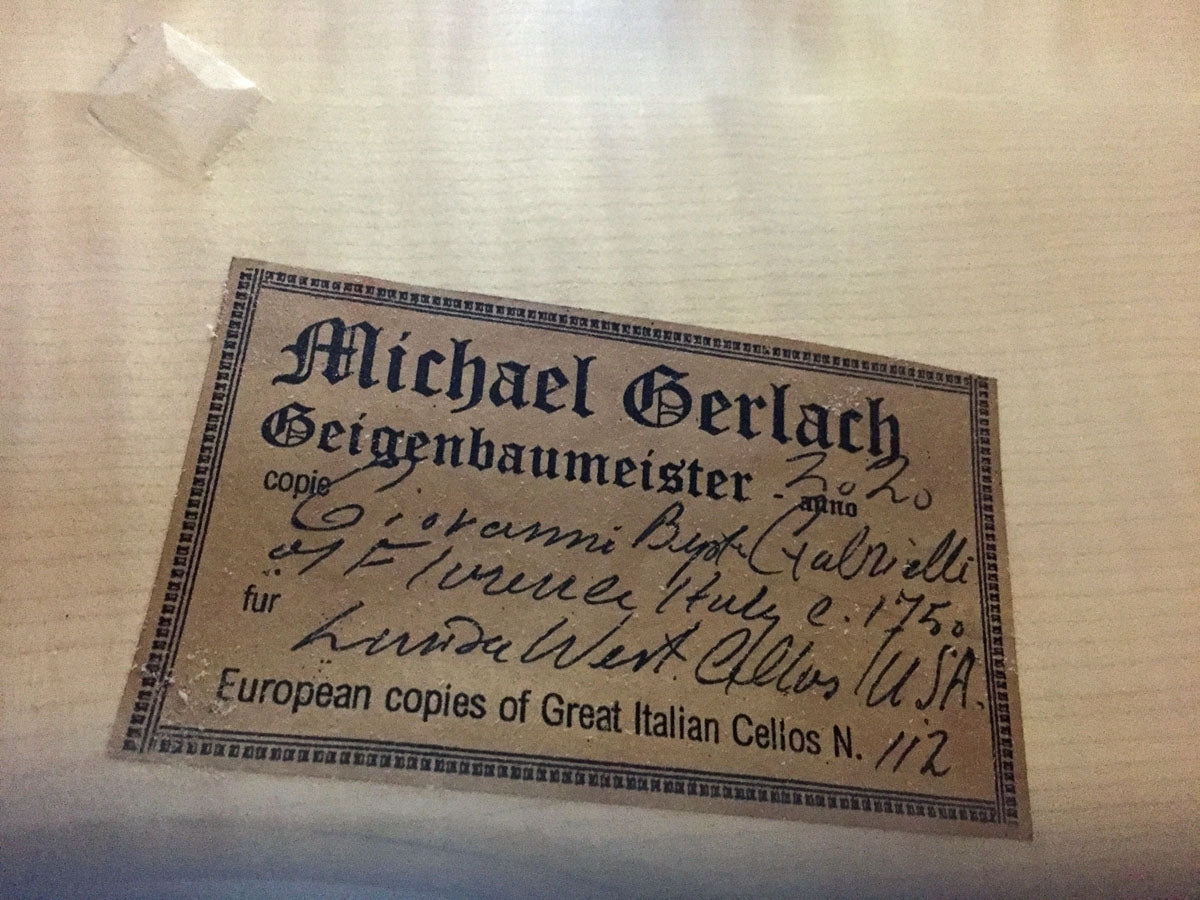 Michael Gerlach
Geigenbaumeister - anno 2020
copie Giovanni Bapt. Gabrielli
of Florence, Italy c. 1750
für Linda West Cellos USA.
European copies of Great Italian Cellos N. 112